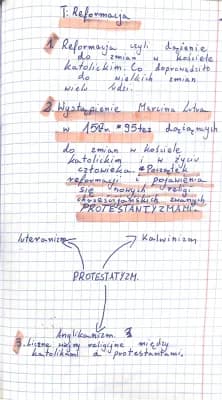 T: Reformacja
1. Reformacja czyli dążenie
do zmian w kościele
katolickim. Co doprowadziło
do wielkich zmian
wielu ludzi.
2. Wystąpienie Marcina Lutra
w 1517r. 95 tez dążących
do zmian w kościele
katolickim i w życiu
człowieka. Początek
reformacji i pojawienia
się nowych religi
chrześcijańskich zwanych
PROTESTANTYZMAMI.
luteranizm Kalwinizm
PROTESTATYZM.
Anglikanizm
3. Liczne wojny religijne między
katolikami a protestantami.